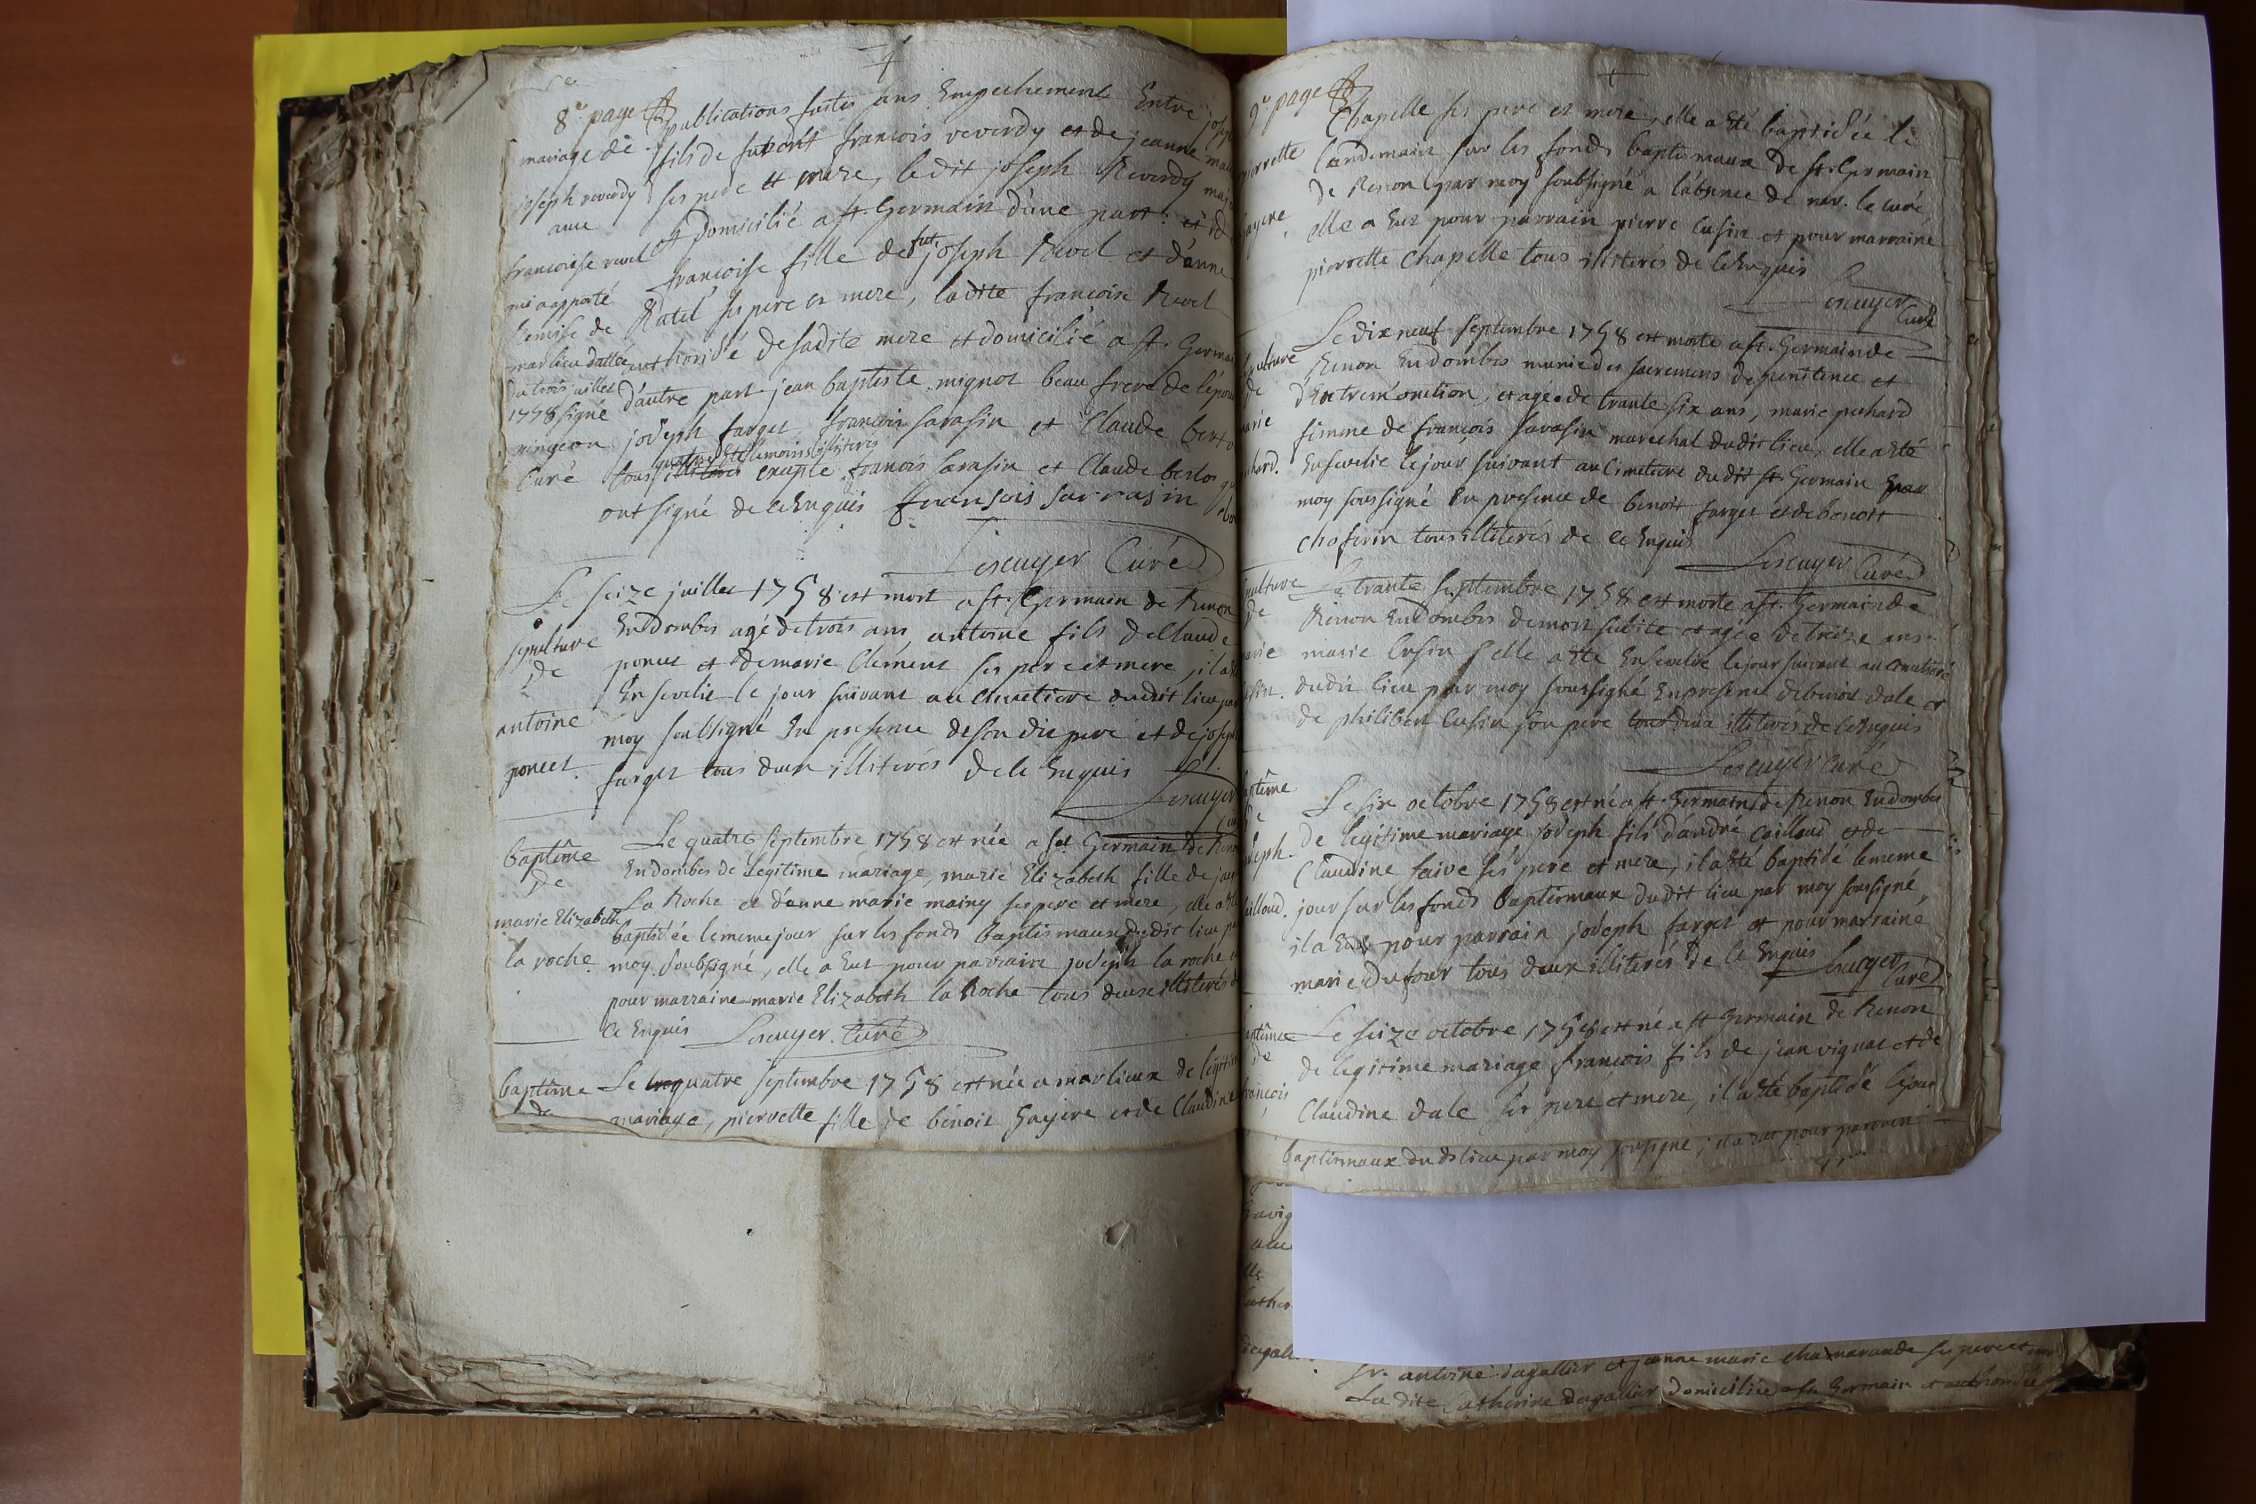 8e page
mariage de
joseph reverdy
avec
francoise revel
qui a apporté
remise de
marlieu dattée
du trois juillet
1758 signé
mingeon
curé
publications faites sans Empechement Entre joseph
fils de francois reverdy et de jeanne
ses pere et mere, le dit joseph Reverdy
domicilié a st. Germain d'une part. et
francoise fille de fut joseph Revel et d'anne
Ratel ses pere et mere, ladite francoise Revel
authorisé de sadite mere et domicilié a st. Germain
d'autre part jean baptiste mignot beau frere de
joseph farget, francois sarasin et Claude
tous quatre témoins illiterés excepté francois sarasin et Claude
ont signé de ce Enquis fransois sarrasin
Lescuyer Curé
sepulture
de
antoine
poncet
Le seize juillet 1758 est mort a st. Germain de Renon
En dombes agé de trois ans antoine fils de Claude
poncet et de marie Clément ses pere et mere, il a
Ensevelie le jour suivant au cimetiere dudit lieu par
moy soubsigné En presence de son dit pere et de joseph
farget tous deux illiterés de ce Enquis
Lescuyer
baptême
de
marie Elizabeth
la roche
Le quatre septembre 1758 est née a st. Germain de Renon
En dombes de Legitime mariage, marie Elizabeth fille de
La Roche et d'anne marie mainy ses pere et mere, elle a
baptisée le meme jour sur les fonds baptismaux dudit lieu
moy soubsigné, elle a Eut pour parrain joseph la roche
pour marraine marie Elizabeth la Roche tous deux illiterés
ce Enquis Lescuyer Curé
baptême
de
Le quatre septembre 1758 est née a marlieux de legitime
mariage, pierrette fille de benoit Gayere et de Claudine
9e page
pierrette
gayere
Chapelle ses pere et mere, elle a été baptisée le
landemain sur les fonds baptismaux de st. Germain
de Renon par moy soubsigné a l'absence de mr. le curé
elle a Eut pour parrain pierre Cusin et pour marraine
pierrette Chapelle tous illiterés de ce Enquis
Lescuyer
Curé
sepulture
de
marie
pechard.
Le dix neuf septembre 1758 est morte a st. Germain de
Renon En dombes munie des sacremens de penitence et
d'Extremonction, et agée de trante six ans, marie pechard
femme de francois sarasin marechal dudit lieu, elle a été
Ensevelie le jour suivant au Cimetiere dudit st. Germain par
moy soussigné En presence de benoit farget et de benoit
choferin tous illiterés de ce Enquis
Lescuyer Curé
sepulture
de
marie
cusin.
Le trante septembre 1758 est morte a st. Germain de
Renon En dombes de mort subite et agée de treize ans
marie Cusin elle a été Ensevelie le jour suivant au cimetiere
dudit lieu par moy soussigné En presence de benoit dale et
de philibert Cusin son pere tous deux illiterés de ce Enquis
Lescuyer Curé
baptême
de
joseph
caillaud.
Le six octobre 1758 est né a st. Germain de Renon En dombes
de legitime mariage joseph fils d'andré Caillaud et de
Claudine faive ses pere et mere, il a été baptisé le meme
jour sur les fonds baptismaux dudit lieu par moy soussigné,
il a Eut pour parrain joseph farget et pour marraine
marie Dufour tous deux illiterés de ce Enquis Lescuyer
Curé
baptême
de
francois
Le seize octobre 1758 est né a st Germain de Renon
de legitime mariage francois fils de jean vignat et de
Claudine dale ses pere et mere, il a été baptisé le jour
baptismaux du dit lieu par moy soussigné; il a Eut pour parrain
sr. antoine dagallier et jeanne marie chamarande ses pere et mere
La dite Catherine dagallier domiciliée a st. Germain